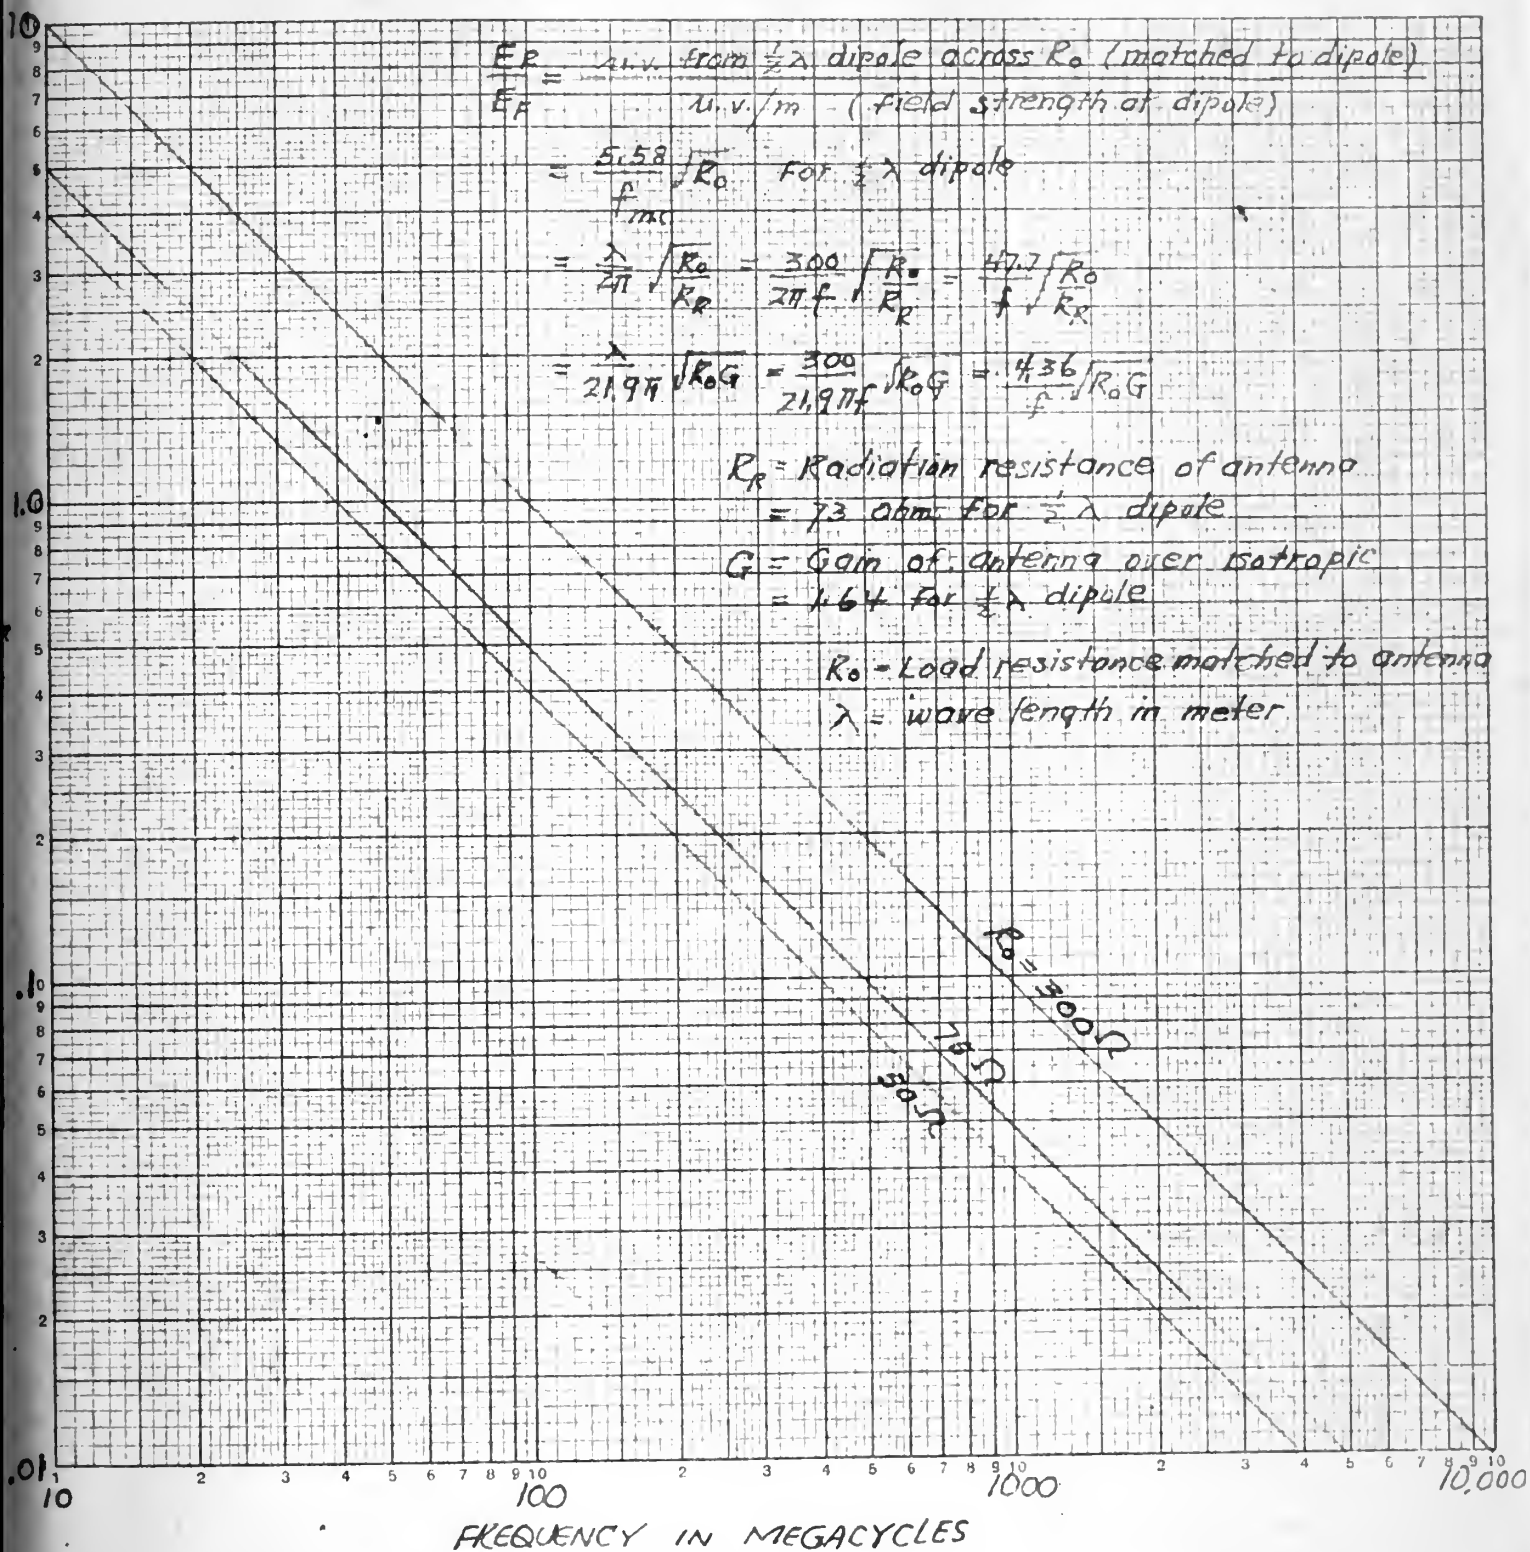 E_R / E_F = u.v. from ½λ dipole across R₀ (matched to dipole) / u.v./m (field strength at dipole)
= 5.58 / f_mc √R₀ For ½λ dipole
= λ/2π √(R₀/R_R) = 300/2πf √(R₀/R_R) = 47.7/f √(R₀/R_R)
= λ/21.9π √R₀G = 300/21.9πf √R₀G = 4.36/f √R₀G
R_R = Radiation resistance of antenna
= 73 Ohm For ½λ dipole
G = Gain of antenna over isotropic
= 1.64 For ½λ dipole
R₀ = Load resistance matched to antenna
λ = wave length in meter
10
9
8
7
6
5
4
3
2
1.0
9
8
7
6
5
4
3
2
.10
9
8
7
6
5
4
3
2
.01
R₀ = 300Ω
Ω
50Ω
1 2 3 4 5 6 7 8 9 10 2 3 4 5 6 7 8 9 10 2 3 4 5 6 7 8 9 10
10 100 1000 10,000
FREQUENCY IN MEGACYCLES